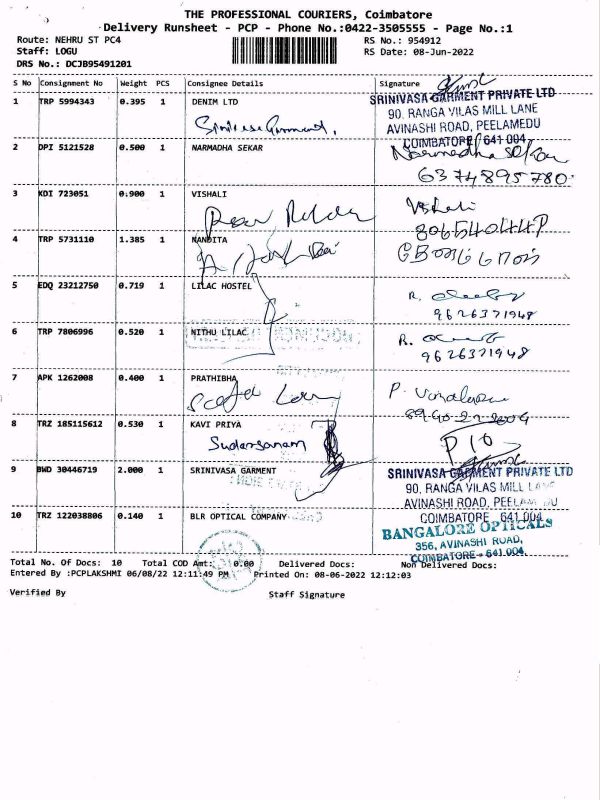 THE PROFESSIONAL COURIERS, Coimbatore
Delivery Runsheet - PCP - Phone No.:0422-3505555 - Page No.:1
Route: NEHRU ST PC4 RS No.: 954912
Staff: LOGU RS Date: 08-Jun-2022
DRS No.: DCJB95491201
S No Consignment No Weight PCS Consignee Details Signature
1 TRP 5994343 0.395 1 DENIM LTD
SRINIVASA GARMENT PRIVATE LTD
90, RANGA VILAS MILL LANE
AVINASHI ROAD, PEELAMEDU
COIMBATORE 641 004
2 DPI 5121528 0.500 1 NARMADHA SEKAR
Narmadha Sekar
6374895780
3 KDI 723051 0.900 1 VISHALI
Vishali
4 TRP 5731110 1.385 1 NANDITA
5 EDQ 23212750 0.719 1 LILAC HOSTEL
R.
9626371948
6 TRP 7806996 0.520 1 NITHU LILAC
R.
9626371948
7 APK 1262008 0.400 1 PRATHIBHA
P.
8 TRZ 185115612 0.530 1 KAVI PRIYA
Sudarsanam
P10
9 BWD 30446719 2.000 1 SRINIVASA GARMENT
SRINIVASA GARMENT PRIVATE LTD
90, RANGA VILAS MILL LANE
AVINASHI ROAD,
COIMBATORE 641 004
10 TRZ 122038806 0.140 1 BLR OPTICAL COMPANY
BANGALORE OPTICALS
356, AVINASHI ROAD,
COIMBATORE - 641 004
Total No. Of Docs: 10 Total COD Amt: 0.00 Delivered Docs: Non Delivered Docs:
Entered By :PCPLAKSHMI 06/08/22 12:11:49 PM Printed On: 08-06-2022 12:12:03
Verified By Staff Signature